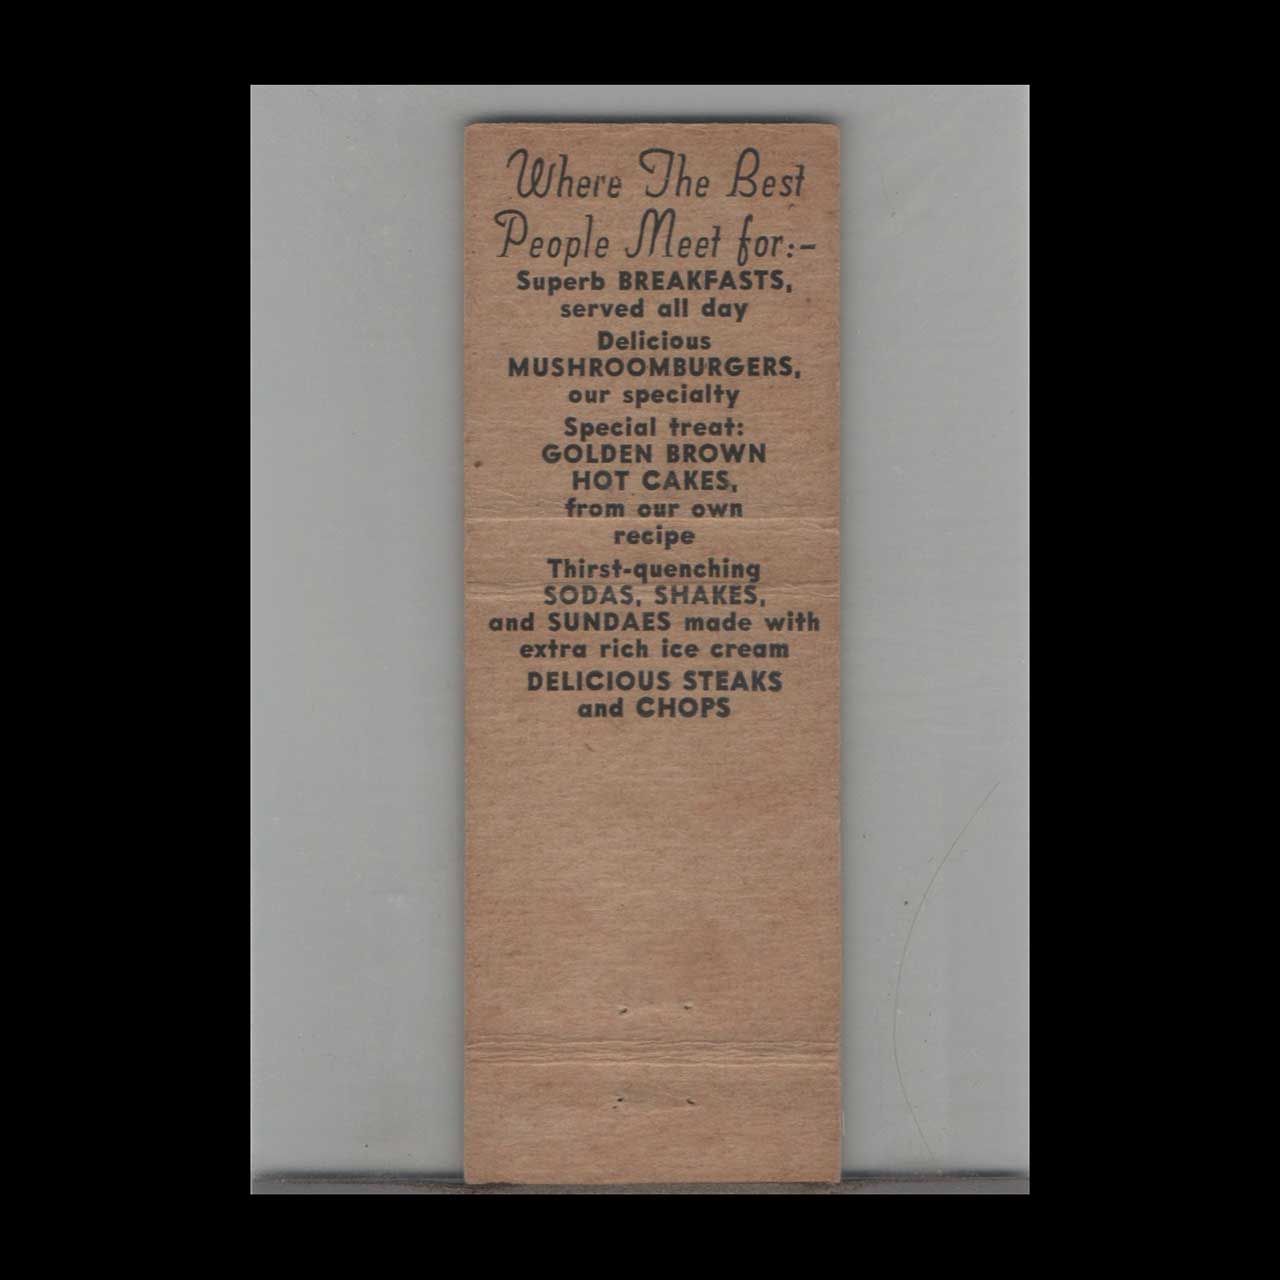 Where The Best
People Meet for:-
Superb BREAKFASTS,
served all day
Delicious
MUSHROOMBURGERS,
our specialty
Special treat:
GOLDEN BROWN
HOT CAKES,
from our own
recipe
Thirst-quenching
SODAS, SHAKES,
and SUNDAES made with
extra rich ice cream
DELICIOUS STEAKS
and CHOPS